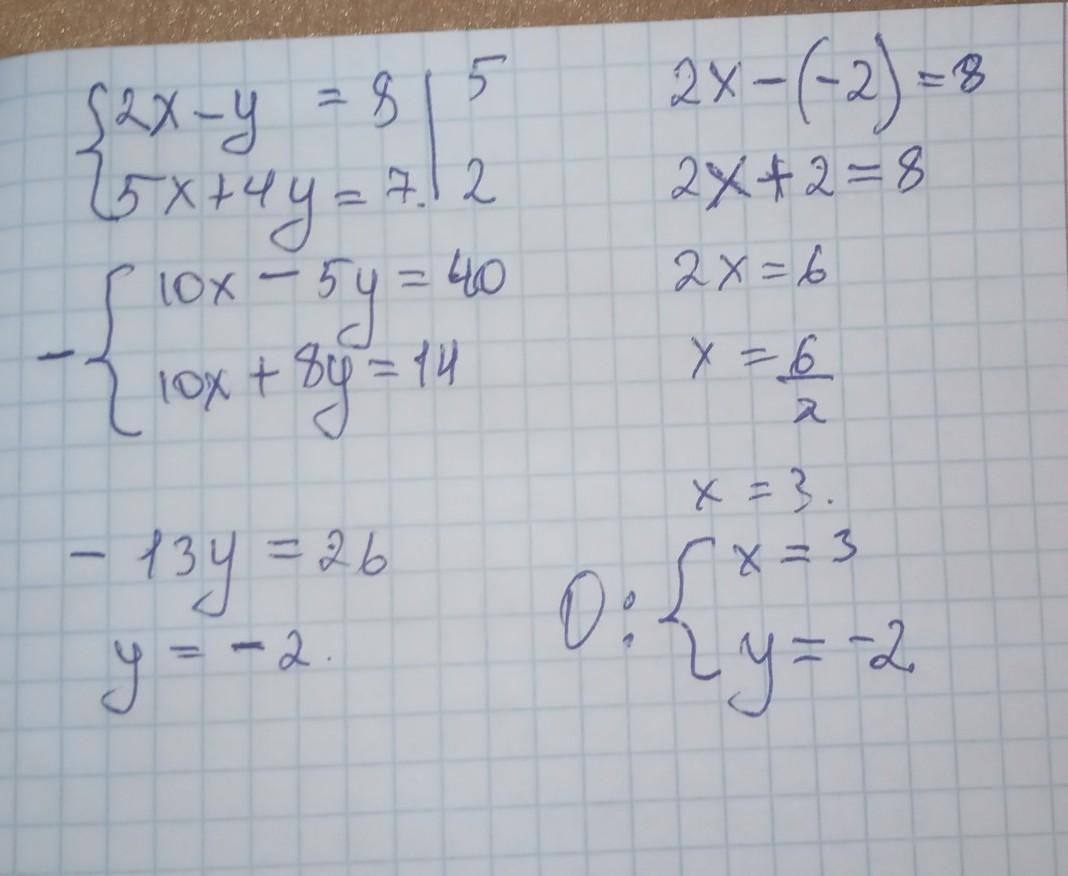 {2x-y = 8 | 5
5x+4y=7. | 2
- {10x - 5y = 40
10x + 8y = 14
- 13y = 26
y = -2.
2x-(-2)=8
2x+2=8
2x=6
x = 6/2
x = 3.
O: {x = 3
y = -2